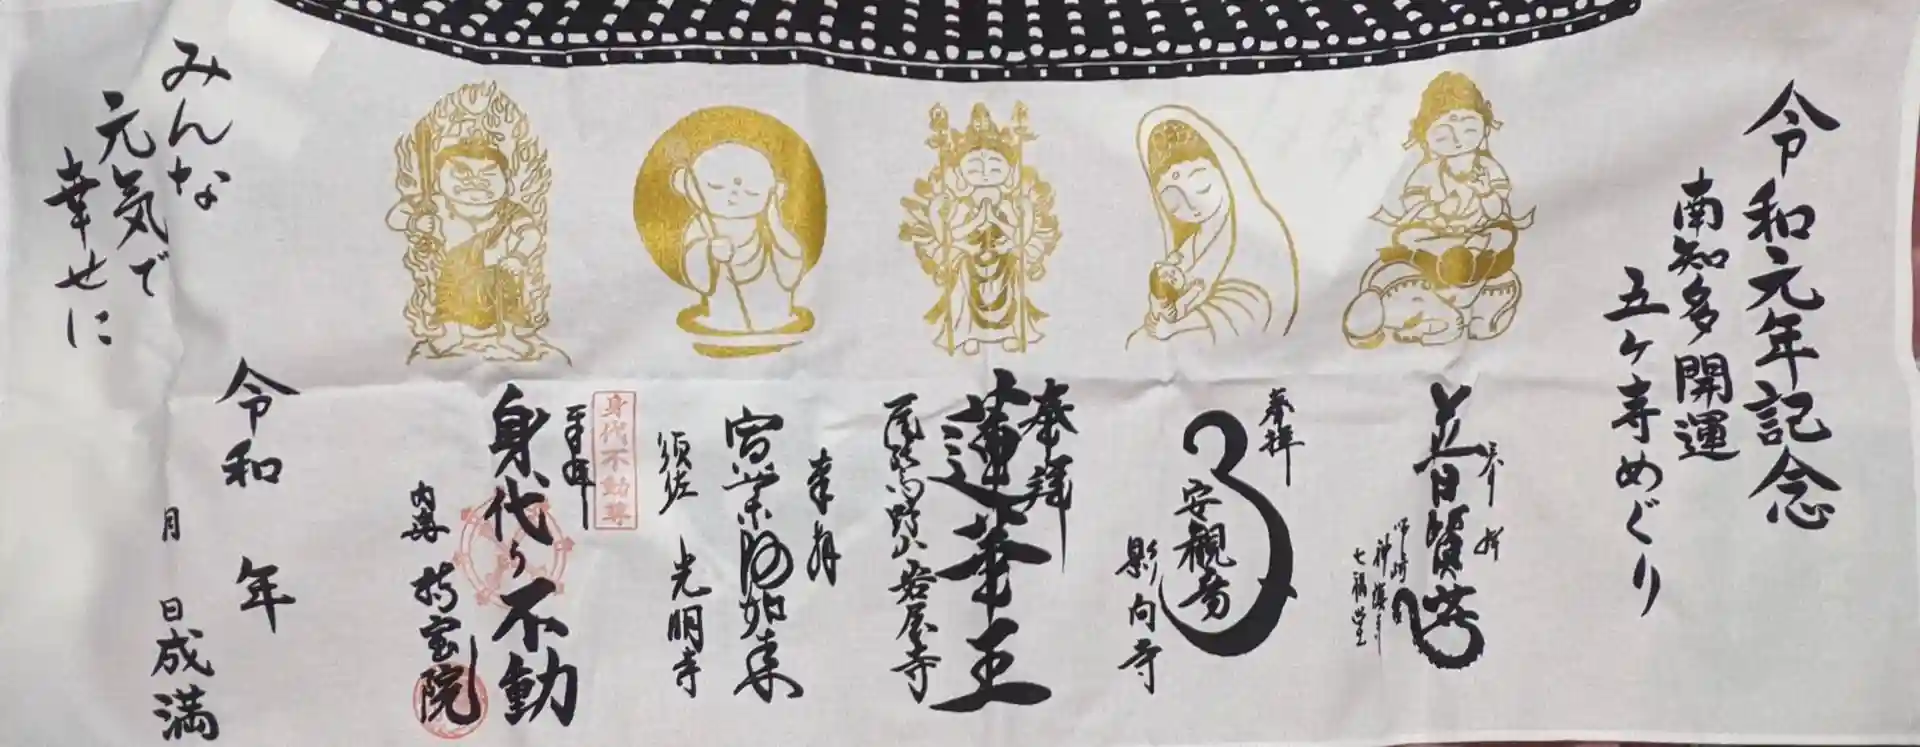 令和元年記念
南知多開運
五ヶ寺めぐり
奉拝
普賢菩薩
七福堂
奉拝
安観音
影向寺
奉拝
蓮華王
岩屋寺
奉拝
如来
須佐
光明寺
身代不動尊
奉拝
身代り不動
内海
持宝院
令和 年
月 日成満
みんな
元気で
幸せに